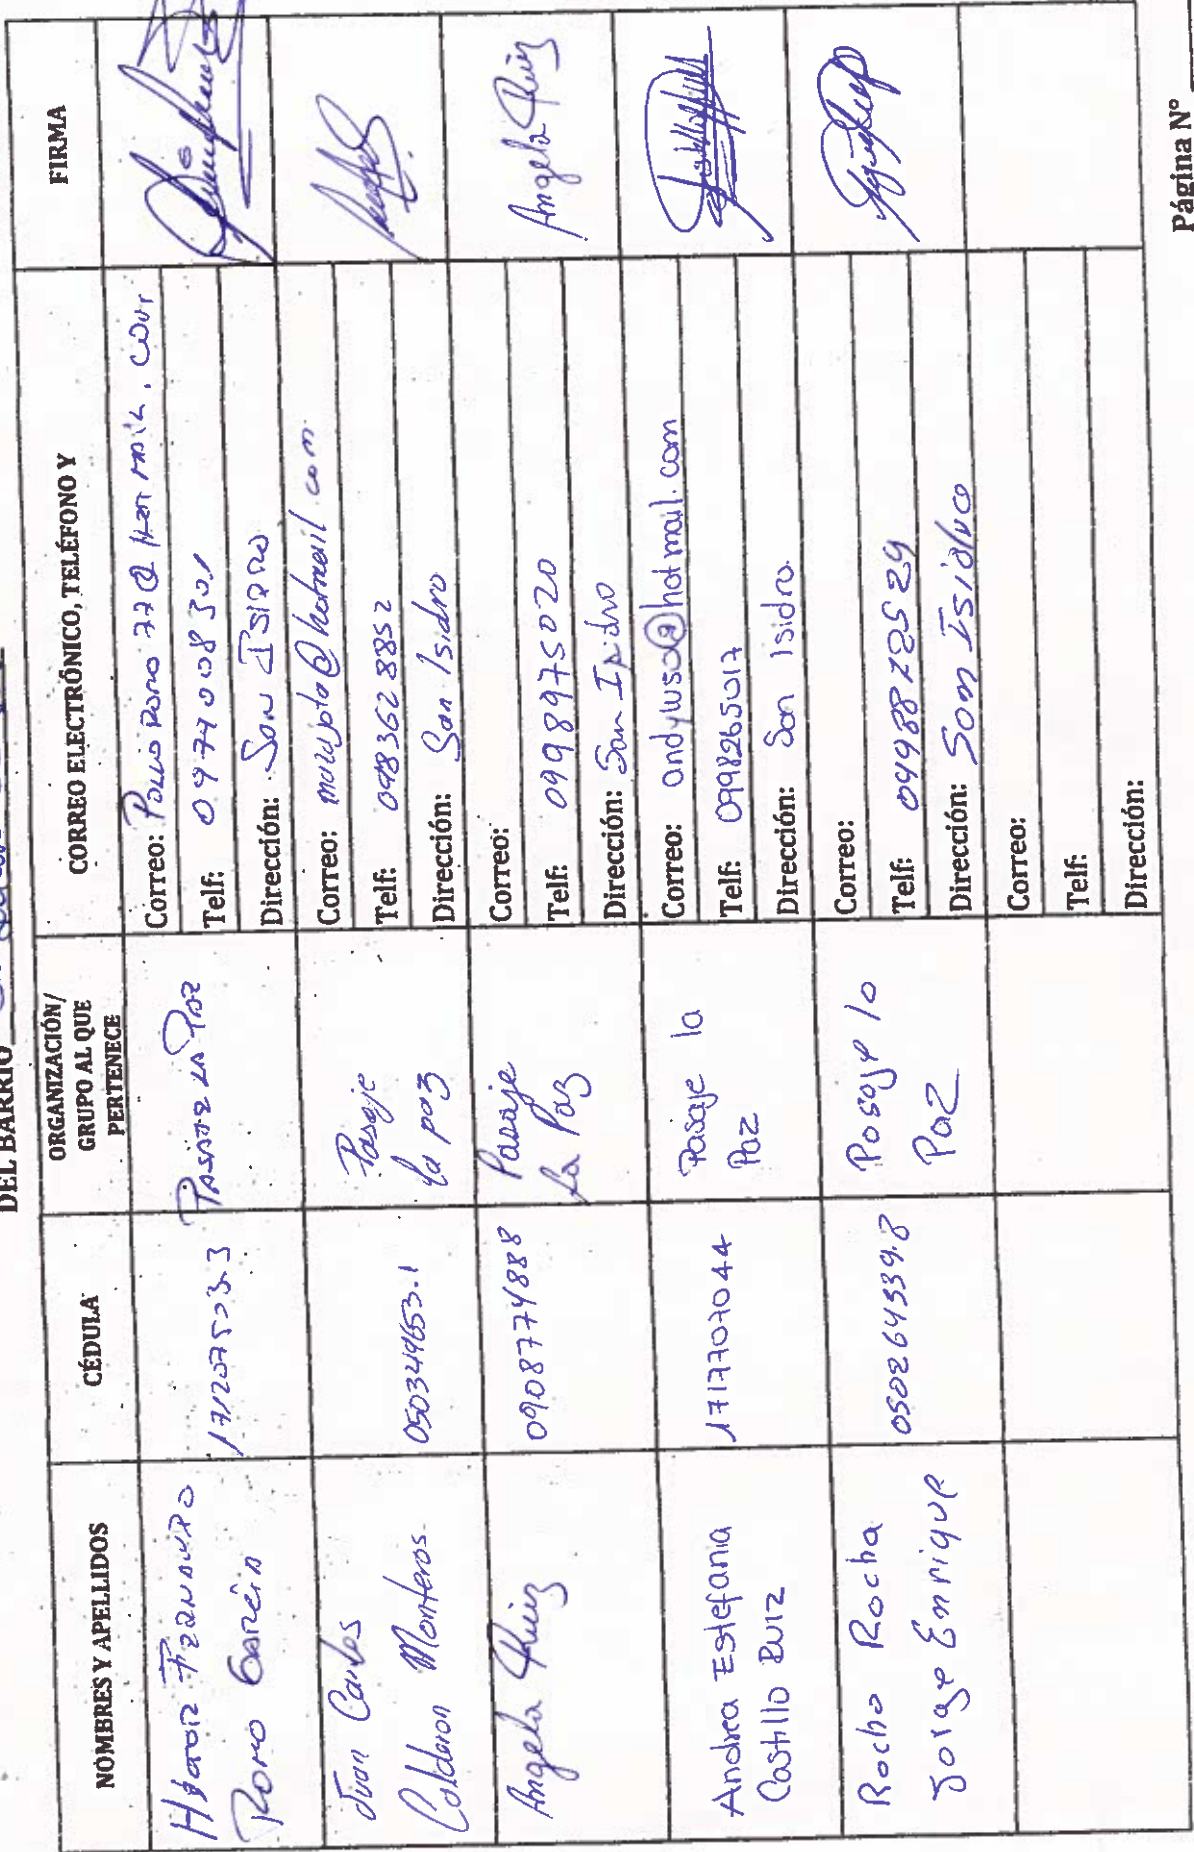 DEL BARRIO
NOMBRES Y APELLIDOS
CÉDULA
ORGANIZACIÓN/
GRUPO AL QUE
PERTENECE
CORREO ELECTRÓNICO, TELÉFONO Y
FIRMA
Romo García
PASAJE LA PAZ
Correo:
Telf: 0977008301
Dirección: San Isidro
Juan Carlos
Calderon Monteros.
050349653.1
Pasaje
la paz
Correo: @hotmail.com
Telf: 0983628852
Dirección: San Isidro
Angela Ruiz
0908774888
Pasaje
La Paz
Correo:
Telf: 0998975020
Dirección: San Isidro
Angela Ruiz
Andrea Estefania
Castillo Ruiz
1717707044
Pasaje la
Paz
Correo: andywso@hotmail.com
Telf: 0998265017
Dirección: San Isidro.
Rocha Rocha
Jorge Enrique
050264339.8
Pasaje la
Paz
Correo:
Telf:
Dirección: San Isidro
Correo:
Telf:
Dirección:
Página N°